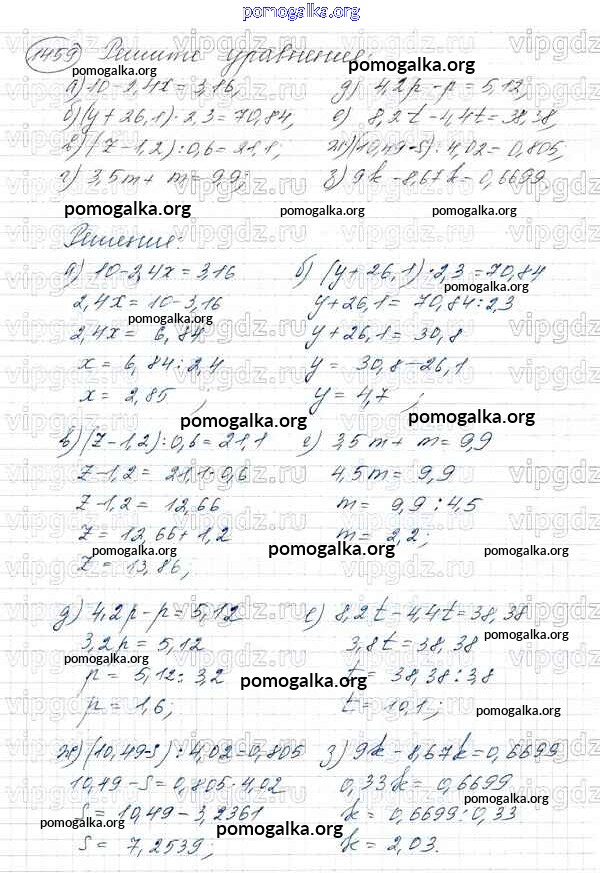 pomogalka.org
1459 Решите уравнение:
а) 10-2,4x = 3,16; д) 4,2p - p = 5,12;
б) (y + 26,1) · 2,3 = 70,84; е) 8,2t - 4,4t = 38,38;
в) (z - 1,2) : 0,6 = 21,1; ж) (10,49-s) : 4,02 = 0,805;
г) 3,5m + m = 9,9; з) 9k - 8,67k = 0,6699.
pomogalka.org pomogalka.org pomogalka.org
Решение:
а) 10-2,4x = 3,16 б) (y + 26,1) · 2,3 = 70,84
2,4x = 10-3,16 y + 26,1 = 70,84 : 2,3
2,4x = 6,84 y + 26,1 = 30,8
x = 6,84 : 2,4 y = 30,8 - 26,1
x = 2,85 ; y = 4,7 ;
pomogalka.org pomogalka.org
в) (z - 1,2) : 0,6 = 21,1 е) 3,5m + m = 9,9
z - 1,2 = 21,1 · 0,6 4,5m = 9,9
z - 1,2 = 12,66 m = 9,9 : 4,5
z = 12,66 + 1,2 m = 2,2;
pomogalka.org pomogalka.org
z = 13,86;
д) 4,2p - p = 5,12 е) 8,2t - 4,4t = 38,38
3,2p = 5,12 3,8t = 38,38
p = 5,12 : 3,2 t = 38,38 : 3,8
p = 1,6; t = 10,1;
pomogalka.org pomogalka.org
ж) (10,49-s) : 4,02 = 0,805 з) 9k - 8,67k = 0,6699
10,49 - s = 0,805 · 4,02 0,33k = 0,6699
s = 10,49 - 3,2361 k = 0,6699 : 0,33
pomogalka.org pomogalka.org pomogalka.org
s = 7,2539; k = 2,03.